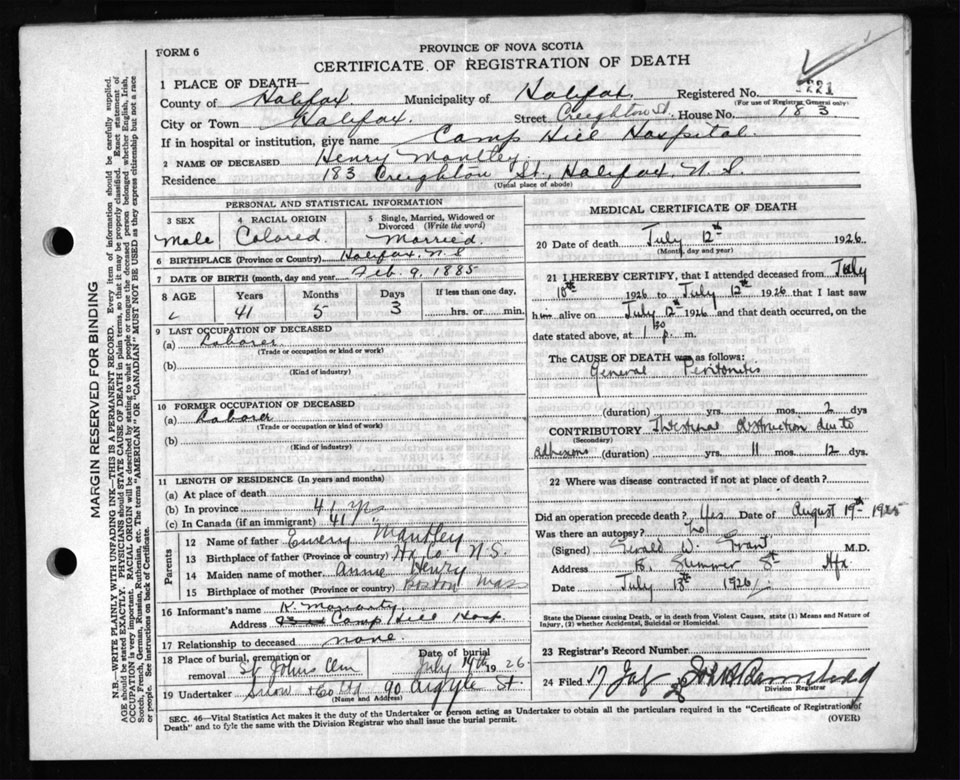 FORM 6
PROVINCE OF NOVA SCOTIA
CERTIFICATE OF REGISTRATION OF DEATH
1 PLACE OF DEATH—
County of Halifax Municipality of Halifax Registered No. 221
(For use of Registrar General only)
City or Town Halifax. Street Creighton St. House No. 183
If in hospital or institution, give name Camp Hill Hospital.
2 NAME OF DECEASED Henry Mantley.
Residence 183 Creighton St., Halifax, N.S.
(Usual place of abode)
PERSONAL AND STATISTICAL INFORMATION
3 SEX Male
4 RACIAL ORIGIN Colored
5 Single, Married, Widowed or Divorced (Write the word) Married.
6 BIRTHPLACE (Province or Country) Halifax, N.S
7 DATE OF BIRTH (month, day and year) Feb. 9, 1885
8 AGE Years 41 Months 5 Days 3 If less than one day, hrs. or min.
9 LAST OCCUPATION OF DECEASED
(a) Laborer
(Trade or occupation or kind or work)
(b)
(Kind of industry)
10 FORMER OCCUPATION OF DECEASED
(a) Laborer
(Trade or occupation or kind of work)
(b)
(Kind of industry)
11 LENGTH OF RESIDENCE (In years and months)
(a) At place of death
(b) In province 41 yrs
(c) In Canada (if an immigrant) 41 "
Parents
12 Name of father Emery Mantley
13 Birthplace of father (Province or country) Hx Co. N.S.
14 Maiden name of mother Annie Henry
15 Birthplace of mother (Province or country) Boston Mass
16 Informant's name K. Moriarty.
Address Camp Hill Hosp.
17 Relationship to deceased none.
18 Place of burial, cremation or removal St Johns Cem July 14th 1926
Date of burial
19 Undertaker Snow & Co Ltd 90 Argyle St
(Name and Address)
MEDICAL CERTIFICATE OF DEATH
20 Date of death July 12th 1926
(Month, day and year)
21 I HEREBY CERTIFY, that I attended deceased from July
10th 1926 to July 12th 1926 that I last saw
him alive on July 12th 1926 and that death occurred, on the
date stated above, at 1 30 p. m.
The CAUSE OF DEATH was as follows:
General Peritonitis
(duration) yrs. mos. 2 dys
CONTRIBUTORY Intestinal obstruction due to
(Secondary)
adhesions (duration) yrs. 11 mos. 12 dys.
22 Where was disease contracted if not at place of death?
Did an operation precede death? Yes Date of August 19th 1925
Was there an autopsy? No
(Signed) Gerald W. Grant M.D.
Address Summer St Hfx.
Date July 13th 1926
State the Disease causing Death, or in death from Violent Causes, state (1) Means and Nature of Injury, (2) whether Accidental, Suicidal or Homicidal.
23 Registrar's Record Number
24 Filed 17 July 26
Division Registrar
SEC. 46—Vital Statistics Act makes it the duty of the Undertaker or person acting as Undertaker to obtain all the particulars required in the "Certificate of Registration of
Death" and to fyle the same with the Division Registrar who shall issue the burial permit.
(OVER)
MARGIN RESERVED FOR BINDING
N.B.—WRITE PLAINLY WITH UNFADING INK—THIS IS A PERMANENT RECORD. Every item of information should be carefully supplied.
AGE should be stated EXACTLY. PHYSICIANS should STATE CAUSE OF DEATH in plain terms, so that it may be properly classified. Exact statement of
OCCUPATION is very important. RACIAL ORIGIN will be described by stating to what people or tongue the deceased person belonged whether English, Irish,
Scotch, French, German, Russian, Ruthenian, etc. The terms "AMERICAN" OR "CANADIAN" MUST NOT BE USED as they express citizenship but not a race
or people. See instructions on back of Certificate.